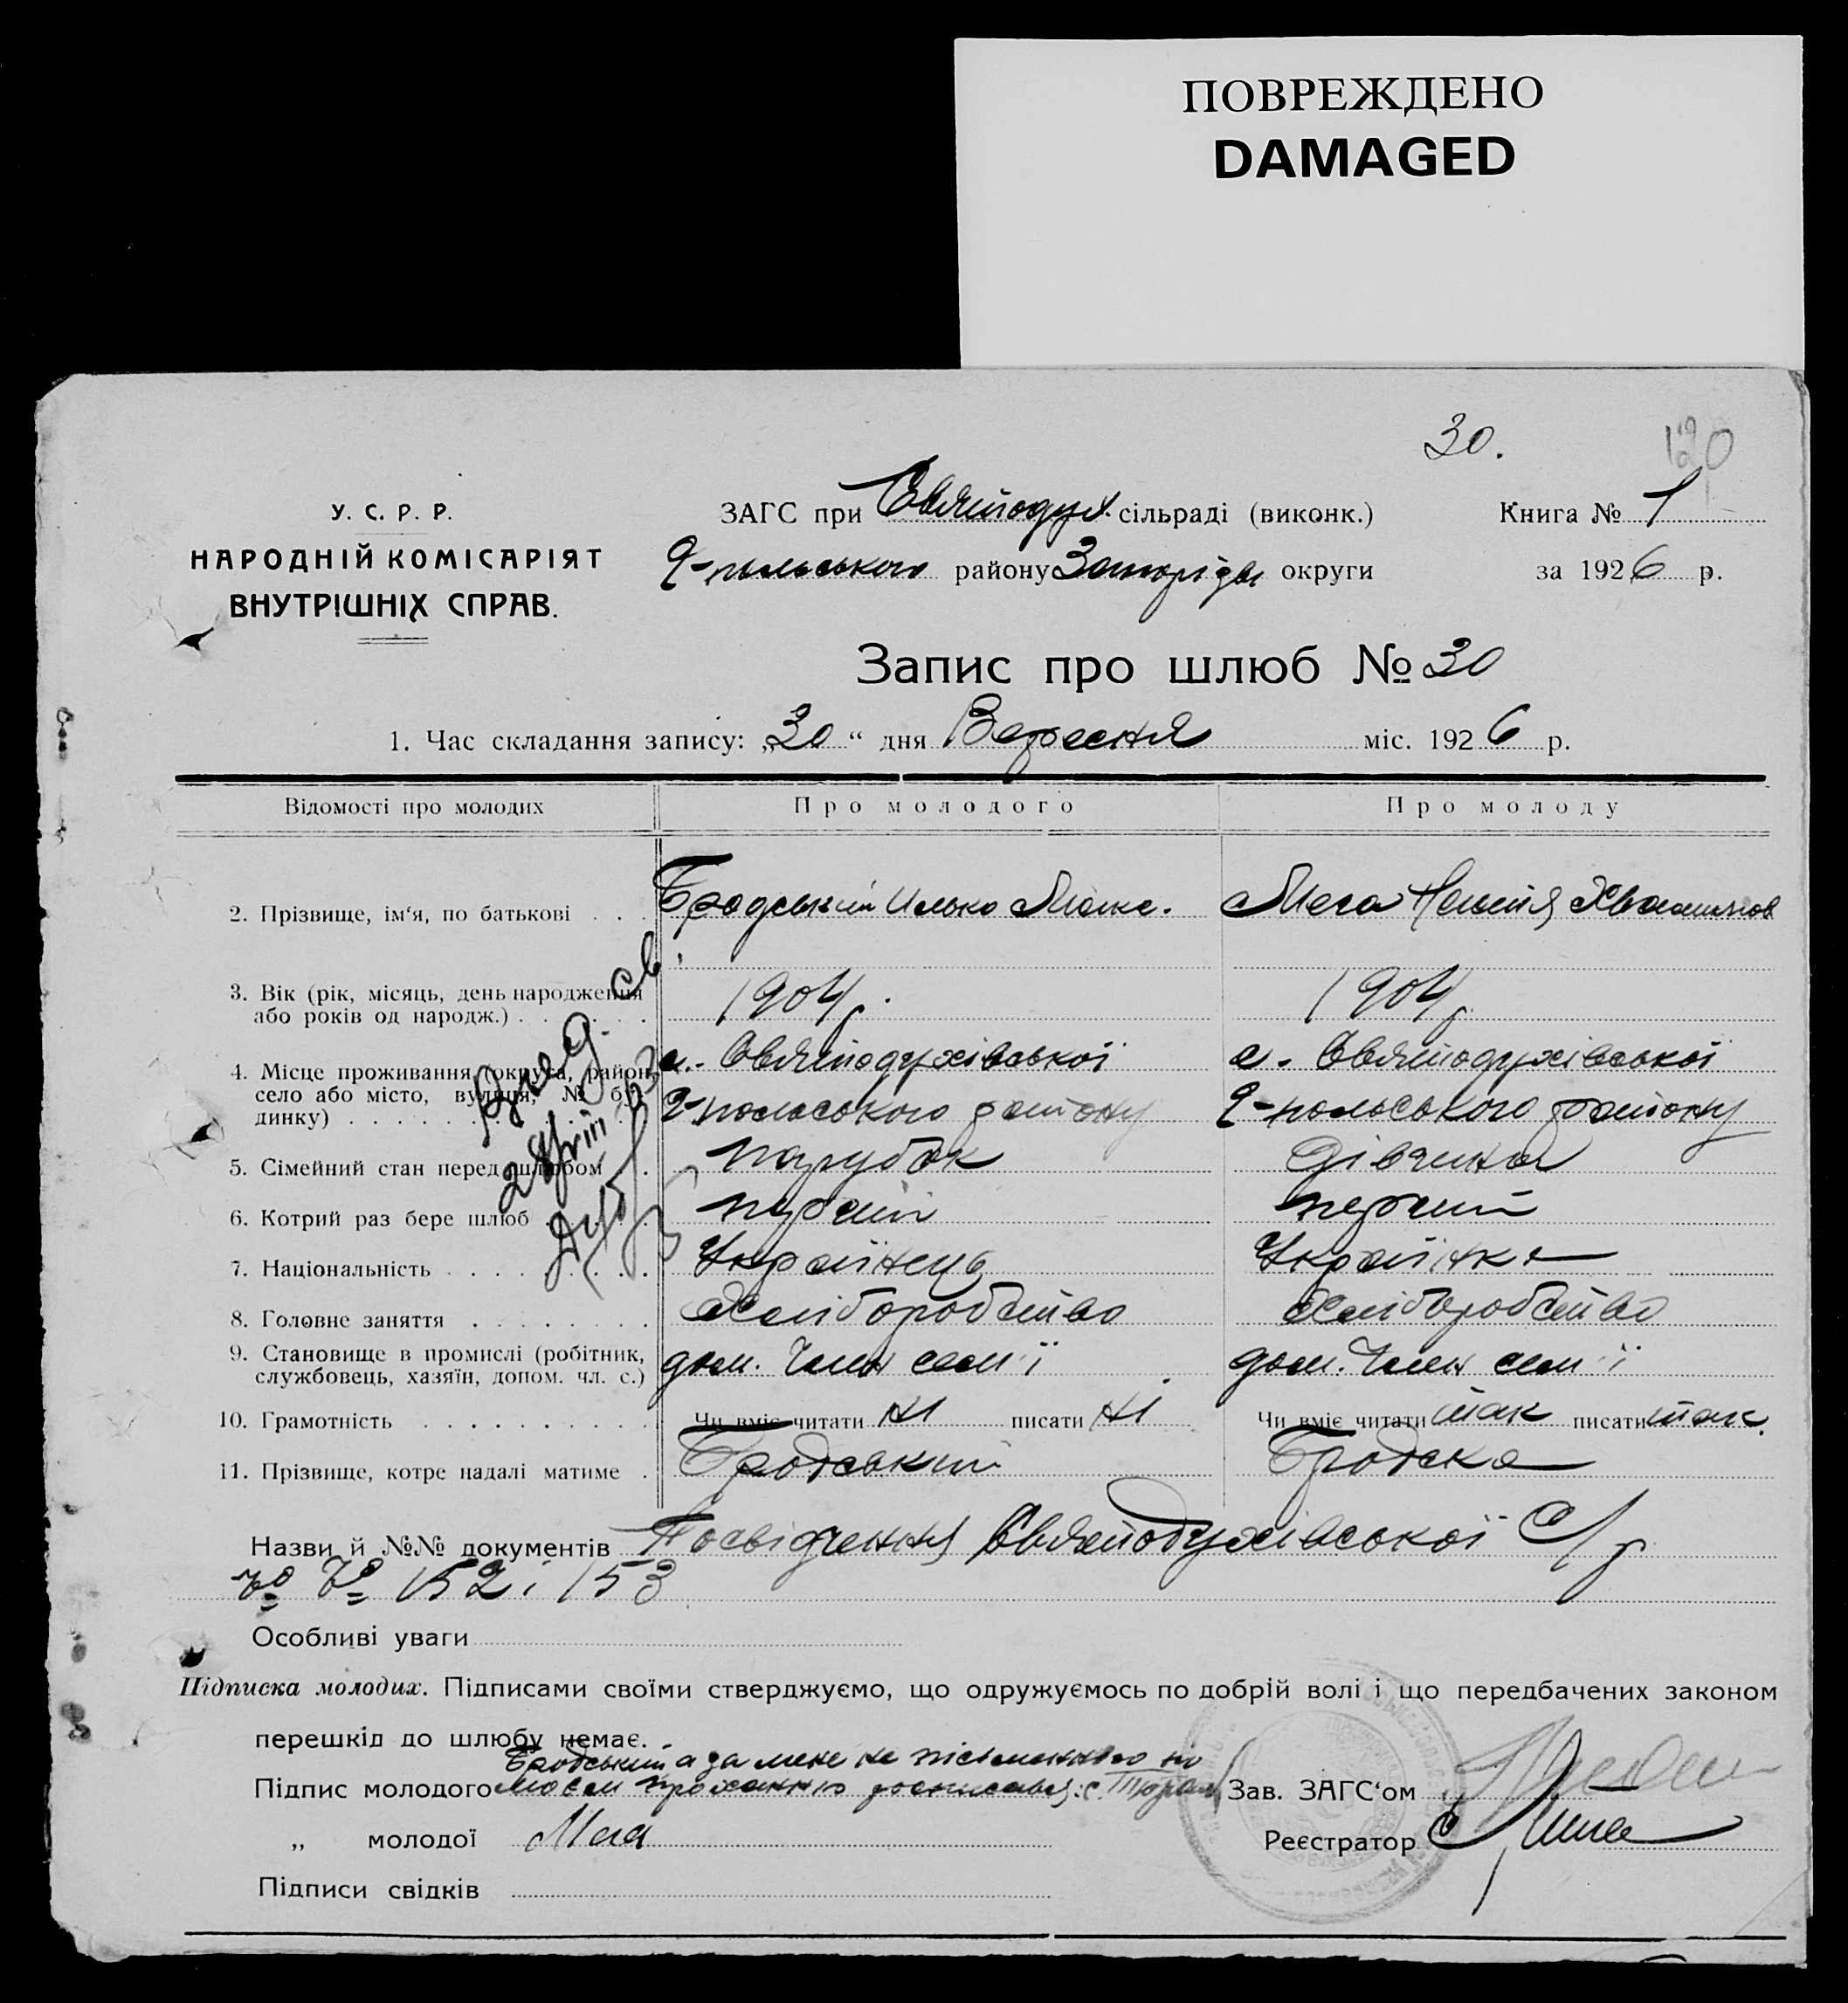 ПОВРЕЖДЕНО
DAMAGED
30.
У. С. Р. Р.
НАРОДНІЙ КОМІСАРІЯТ
ВНУТРІШНІХ СПРАВ.
ЗАГС при Святодух. сільраді (виконк.)
Книга № 1
Ч-пільського району Запорізьк округи
за 1926 р.
Запис про шлюб № 30
1. Час складання запису: „30“ дня Вересня міс. 1926 р.
Відомості про молодих
Про молодого
Про молоду
2. Прізвище, ім‘я, по батькові . . .
Бродський Илько
Мега
3. Вік (рік, місяць, день народження
або років од народж.) . . . . . .
1904 р.
1904 р.
4. Місце проживання (округа, район,
село або місто, вулиця, № бу-
динку) . . . . . . . . . . .
с. Святодухівської
Ч-польського району
с. Святодухівської
Ч-польського району
5. Сімейний стан перед шлюбом . .
парубок
дівчина
6. Котрий раз бере шлюб . . . .
перший
перший
7. Національність . . . . . . . .
Українець
Українка
8. Головне заняття . . . . . . . .
Хліборобство
Хліборобство
9. Становище в промислі (робітник,
службовець, хазяїн, допом. чл. с.)
дом. Член сем'ї
дом. Член сем'ї
10. Грамотність . . . . . . . . . .
Чи вміє читати ні писати ні
Чи вміє читати так писати так.
11. Прізвище, котре надалі матиме .
Бродський
Бродська
Назви й №№ документів Посвідчення Святодухівської С/р
№ № 152 і 153
Особливі уваги
Підписка молодих. Підписами своїми стверджуємо, що одружуємось по добрій волі і що передбачених законом
перешкід до шлюбу немає.
Бродський а за мене не письменного по
Підпис молодого моєм проханню росписався
Зав. ЗАГС‘ом
„ молодої Мега
Реєстратор
Підписи свідків